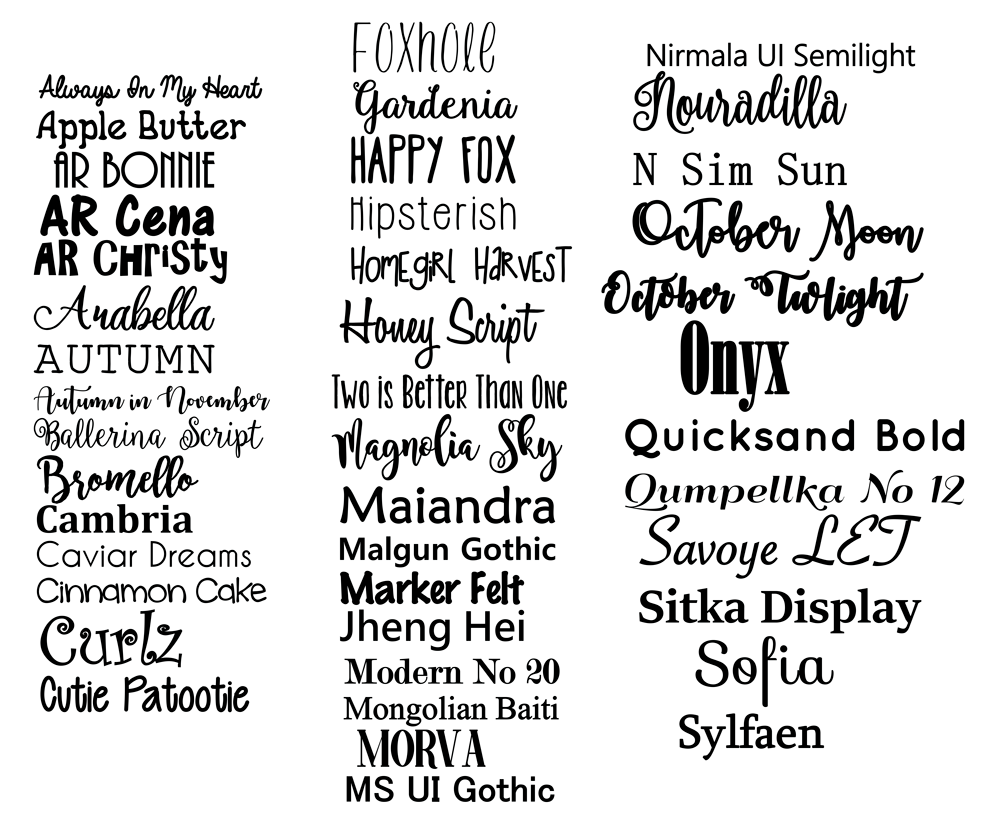 Always In My Heart
Apple Butter
AR BONNIE
AR Cena
AR CHristy
Arabella
AUTUMN
Autumn in November
Ballerina Script
Bromello
Cambria
Caviar Dreams
Cinnamon Cake
Curlz
Cutie Patootie
Foxhole
Gardenia
HAPPY FOX
Hipsterish
HOMEGIRL HARVEST
Honey Script
Two is Better Than One
Magnolia Sky
Maiandra
Malgun Gothic
Marker Felt
Jheng Hei
Modern No 20
Mongolian Baiti
MORVA
MS UI Gothic
Nirmala UI Semilight
Nouradilla
N Sim Sun
October Moon
October Twilight
Onyx
Quicksand Bold
Qumpellka No 12
Savoye LET
Sitka Display
Sofia
Sylfaen